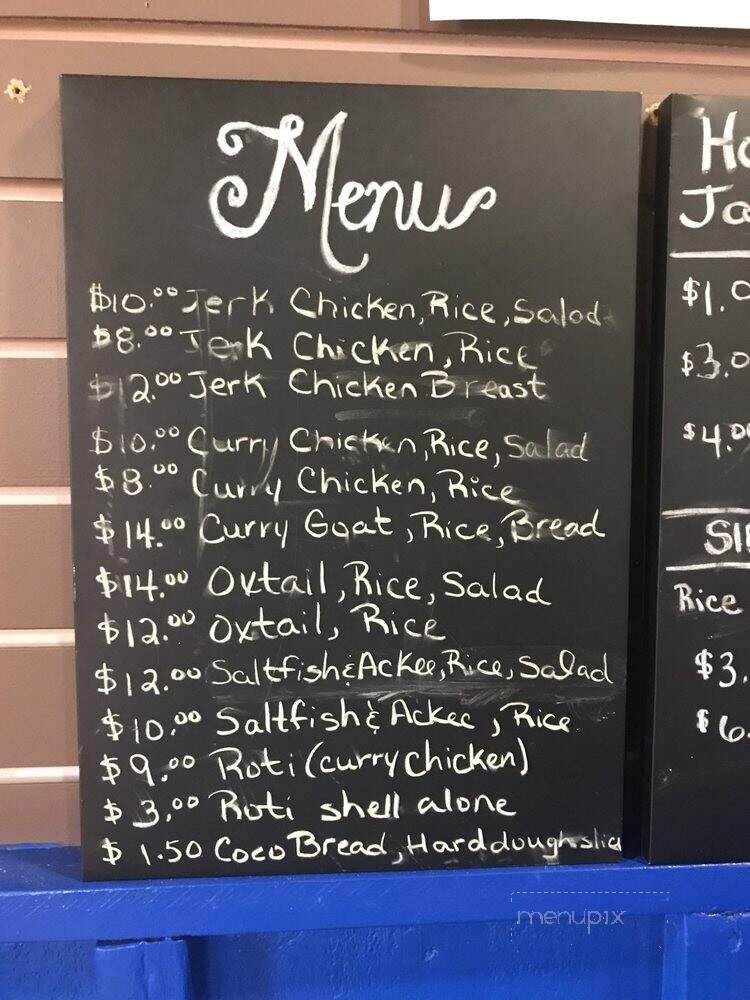 Menu
$10.00 Jerk Chicken, Rice, Salad
$8.00 Jerk Chicken, Rice
$12.00 Jerk Chicken Breast
$10.00 Curry Chicken, Rice, Salad
$8.00 Curry Chicken, Rice
$14.00 Curry Goat, Rice, Bread
$14.00 Oxtail, Rice, Salad
$12.00 Oxtail, Rice
$12.00 Saltfish & Ackee, Rice, Salad
$10.00 Saltfish & Ackee, Rice
$9.00 Roti (curry chicken)
$3.00 Roti shell alone
$1.50 Coco Bread, Harddough slice
Ho
Ja
$1.0
$3.0
$4.00
SI
Rice
$3.
$6.
menupix